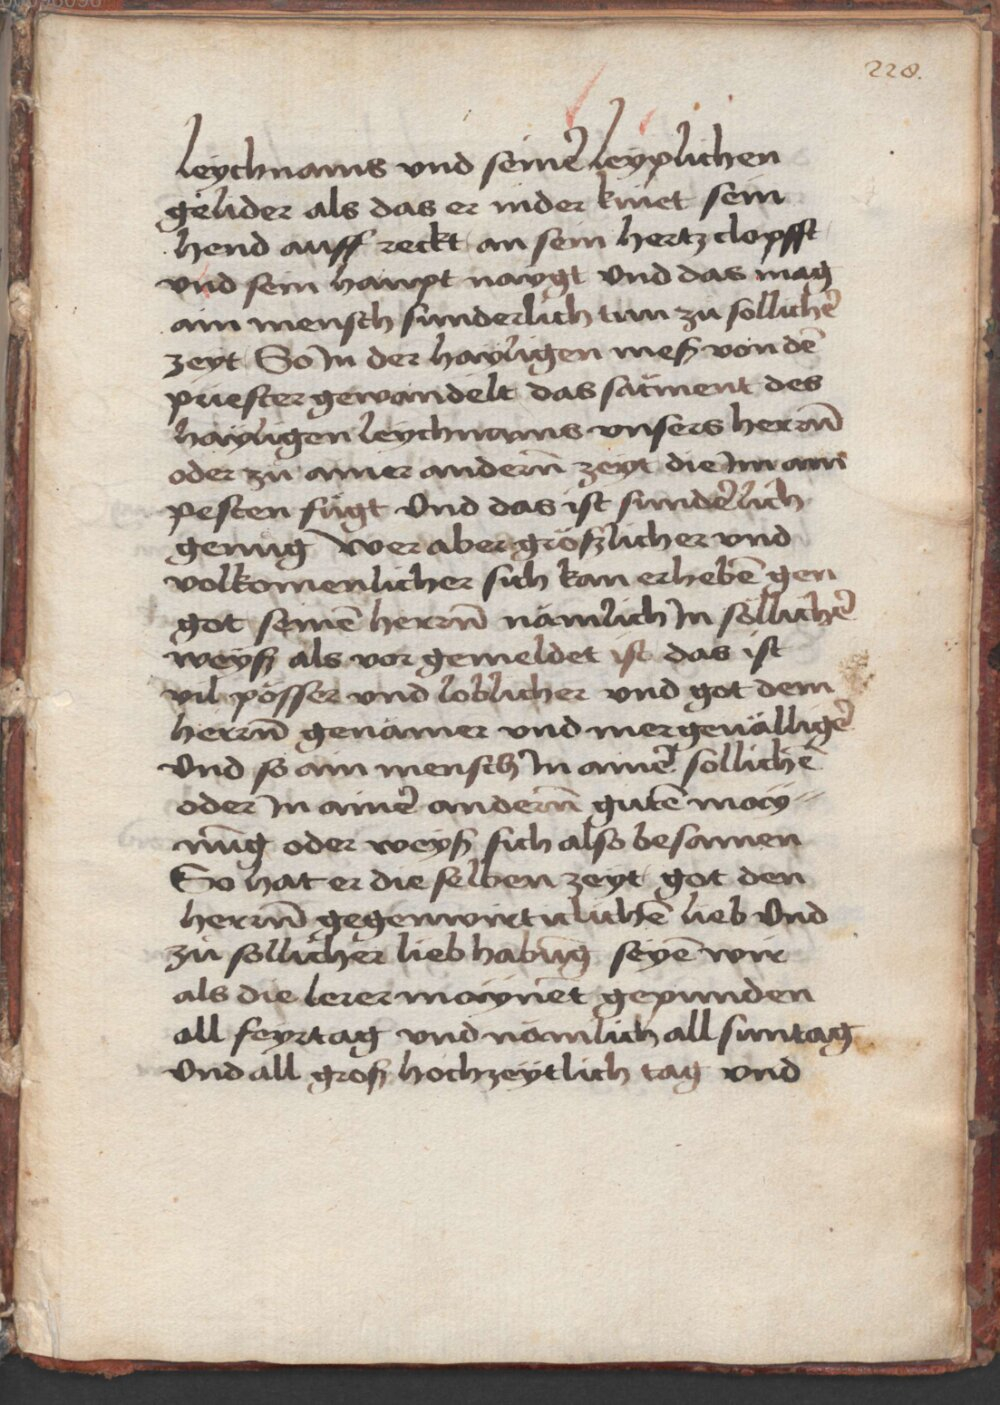 228.
leychnams vnd seinẽ leyplichen
gelider als das er nider kniet sein
hend auff reckt an sein hertz clopfft
vnd sein haupt naygt Vnd das mag
ain mensch sunderlich tun zů sollichẽ
zeyt So In der hayligen meß von dẽ
priester gewandelt das sacment des
hayligen leychnams vnsers herrñ
oder zů ainer anderñ zeyt die Im am
pesten fůgt Vnd das ist sunderlich
genůg Wer aber größlicher vnd
volkomenlicher sich kan erhebẽ gen
got seinẽ herrñ nämlich In söllichẽ
weyß als vor gemeldet ist das ist
vil pösser vnd loblicher vnd got dem
herrñ genämer vnd mer geuälligẽ
Vnd so ain mensch In ainẽ sollichẽ
oder In ainẽ anderñ gutẽ may-
nũg oder weyß sich also besamen
So hat er die selben zeyt got den
herrñ gegenwirticlichẽ lieb Vnd
zů sollicher lieb habũg seyẽ wir
als die lerer maynẽt gepunden
all feyrtag vnd nämlich all suntag
Vnd all groß hochzeytlich tag vnd